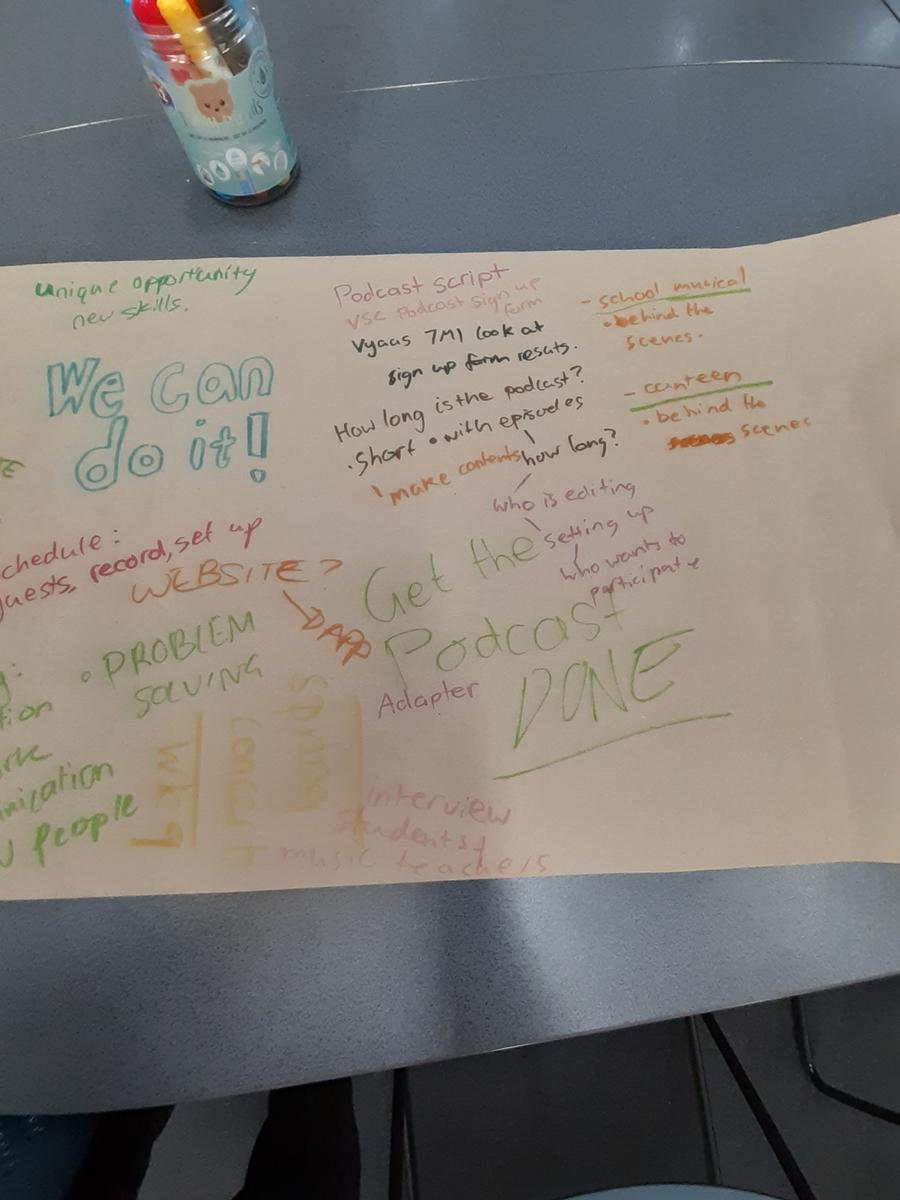 unique opportunity
new skills.
We can
do it!
schedule:
guests, record, set up
WEBSITE?
APP
• PROBLEM
SOLVING
People
Spring
concert
Wk 9
Podcast script
VSC Podcast sign up
form
Vyaas 7M1 look at
sign up form resuts.
How long is the podcast?
• Short • with episodes
make contents how long?
who is editing
setting up
who wants to
participate
Get the
Podcast
DONE
Adapter
interview
students
music teachers
- school musical
• behind the
scenes.
- canteen
• behind the
scenes